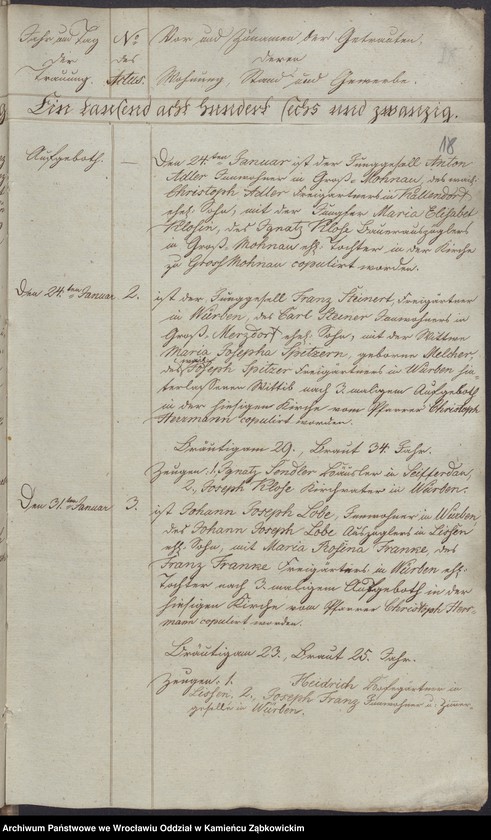 Jahr und Tag der Trauung.
No des Aktus.
Vor und Zunamen der Getrauten,
deren
Wohnung, Stand und Gewerbe.
Ein tausend acht hundert sechs und zwanzig.
18
Aufgeboth. —
Den 24.ten Januar ist der Junggesell Anton
Adler Innwohner in Groß-Mohnau, des weil.
Christoph Adler Freigärtners in Kaltendorf
ehel. Sohn, mit der Jungfer Maria Elisabet
Klosin, des Ignatz Klose Bauerauszüglers
in Groß Mohnau ehl. Tochter in der Kirche
zu Groß Mohnau copulirt worden.
Den 24.ten Januar 2. ist der Junggesell Franz Steinert, Freigärtner
in Würben, des Carl Steiner Innwohners in
Groß-Merzdorf ehel. Sohn, mit der Wittwe
Maria Josepha Spitzern, geborne Melcher,
des Joseph Spitzer Freigärtners in Würben hin-
terlassenen Wittib nach 3. maligem Aufgeboth
in der hiesigen Kirche vom Pfarrer Christoph
Herrmann copulirt worden.
Bräutigam 29., Braut 34. Jahr.
Zeugen. 1. Ignatz Tendler Häusler in
2., Joseph Klose Kirchvater in Würben.
Den 31.ten Januar 3. ist Johann Joseph Lobe, Innwohner in Würben
des Johann Joseph Lobe Auszüglers in
ehl. Sohn, mit Maria Rosina Franke, des
Franz Franke Freigärtners in Würben ehl.
Tochter nach 3. maligem Aufgeboth in der
hiesigen Kirche vom Pfarrer Christoph Herr-
mann copulirt worden.
Bräutigam 23., Braut 25. Jahr.
Zeugen. 1. Heidrich Hofegärtner in
2., Joseph Franz Innwohner u. Zimer-
geselle in Würben.
Archiwum Państwowe we Wrocławiu Oddział w Kamieńcu Ząbkowickim